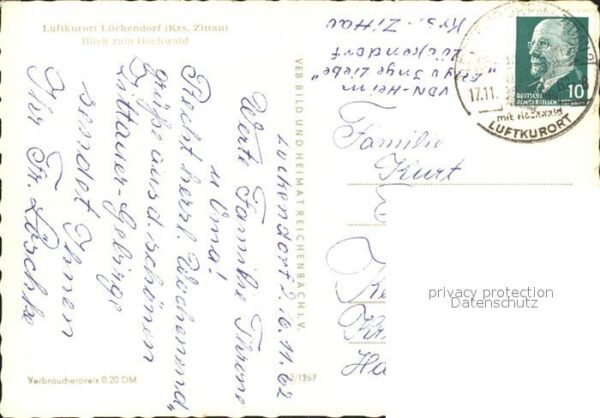 Luftkurort Lückendorf (Krs. Zittau)
Blick zum Hochwald
Lückendorf, 16.11.62
Werte Familie Throne
u. Oma!
Recht herzl. Wochenend-
grüße aus d. schönen
Zittauer-Gebirge
sendet Ihnen
Ihr Fr.
Verbraucherpreis 0.20 DM
VEB BILD UND HEIMAT REICHENBACH I. V.
/1267
VDN-Heim
Lückendorf
Krs. Zittau
Familie
Kurt
17.11.
mit Hochwald
LUFTKURORT
DEUTSCHE
DEMOKRATISCHE
10
privacy protection
Datenschutz